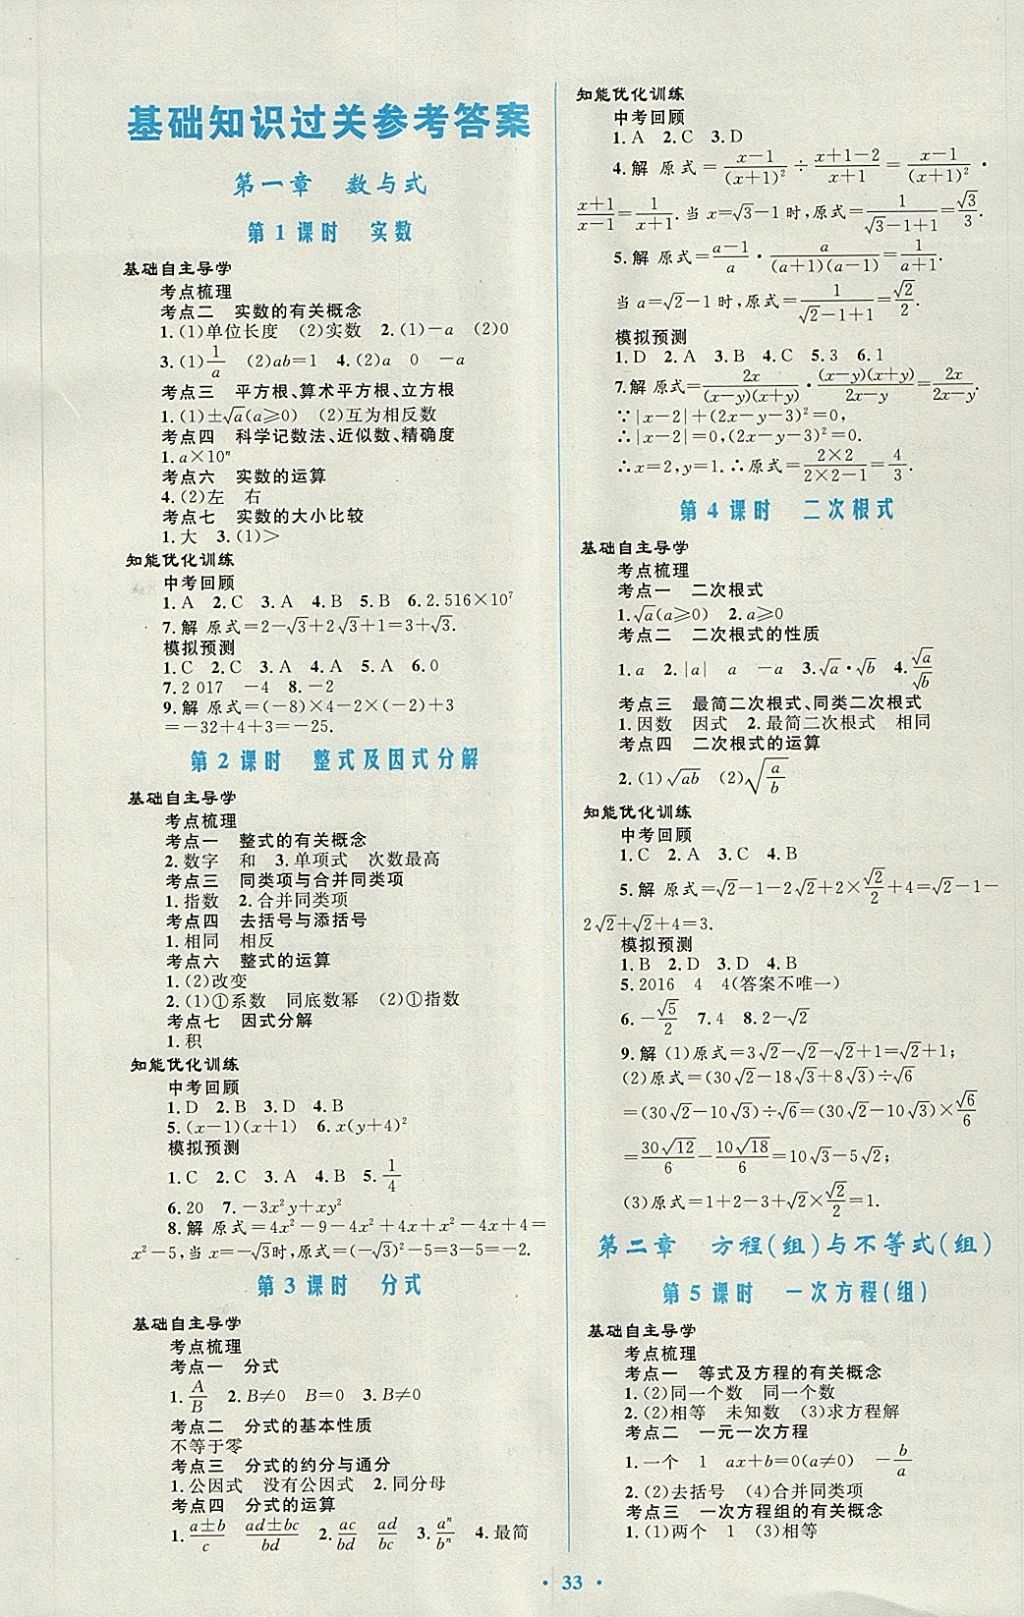 基础知识过关参考答案
第一章 数与式
第1课时 实数
基础自主导学
考点梳理
考点二 实数的有关概念
1.(1)单位长度 (2)实数 2.(1)-a (2)0
3.(1)1/a (2)ab=1 4.(2)a 0 -a
考点三 平方根、算术平方根、立方根
1.(1)±√a(a≥0) (2)互为相反数
考点四 科学记数法、近似数、精确度
1.a×10ⁿ
考点六 实数的运算
4.(2)左 右
考点七 实数的大小比较
1.大 3.(1)>
知能优化训练
中考回顾
1.A 2.C 3.A 4.B 5.B 6.2.516×10⁷
7.解 原式=2-√3+2√3+1=3+√3.
模拟预测
1.C 2.C 3.A 4.A 5.A 6.0
7.2 017 -4 8.-2
9.解 原式=(-8)×4-2×(-2)+3
=-32+4+3=-25.
第2课时 整式及因式分解
基础自主导学
考点梳理
考点一 整式的有关概念
2.数字 和 3.单项式 次数最高
考点三 同类项与合并同类项
1.指数 2.合并同类项
考点四 去括号与添括号
1.相同 相反
考点六 整式的运算
1.(2)改变
2.(1)①系数 同底数幂 (2)①指数
考点七 因式分解
1.积
知能优化训练
中考回顾
1.D 2.B 3.D 4.B
5.(x-1)(x+1) 6.x(y+4)²
模拟预测
1.C 2.C 3.A 4.B 5.1/4
6.20 7.-3x²y+xy²
8.解 原式=4x²-9-4x²+4x+x²-4x+4=
x²-5,当x=-√3时,原式=(-√3)²-5=3-5=-2.
第3课时 分式
基础自主导学
考点梳理
考点一 分式
1.A/B 2.B≠0 B=0 3.B≠0
考点二 分式的基本性质
不等于零
考点三 分式的约分与通分
1.公因式 没有公因式 2.同分母
考点四 分式的运算
1.(a±b)/c (ad±bc)/bd 2.ac/bd ad/bc 3.aⁿ/bⁿ 4.最简
知能优化训练
中考回顾
1.A 2.C 3.D
4.解 原式=(x-1)/(x+1)²÷(x+1-2)/(x+1)=(x-1)/(x+1)²·
(x+1)/(x-1)=1/(x+1).当x=√3-1时,原式=1/(√3-1+1)=√3/3.
5.解 原式=(a-1)/a·a/((a+1)(a-1))=1/(a+1).
当a=√2-1时,原式=1/(√2-1+1)=√2/2.
模拟预测
1.D 2.A 3.B 4.C 5.3 6.1
7.解 原式=2x/((x-y)(x+y))·(x-y)(x+y)/(2x-y)=2x/(2x-y).
∵|x-2|+(2x-y-3)²=0,
∴|x-2|=0,(2x-y-3)²=0.
∴x=2,y=1.∴原式=(2×2)/(2×2-1)=4/3.
第4课时 二次根式
基础自主导学
考点梳理
考点一 二次根式
1.√a(a≥0) 2.a≥0
考点二 二次根式的性质
1.a 2.|a| a -a 3.√a·√b 4.√a/√b
考点三 最简二次根式、同类二次根式
1.因数 因式 2.最简二次根式 相同
考点四 二次根式的运算
2.(1)√ab (2)√(a/b)
知能优化训练
中考回顾
1.C 2.A 3.C 4.B
5.解 原式=√2-1-2√2+2×√2/2+4=√2-1-
2√2+√2+4=3.
模拟预测
1.B 2.D 3.D 4.B
5.2016 4 4(答案不唯一)
6.-√5/2 7.4 8.2-√2
9.解 (1)原式=3√2-√2-√2+1=√2+1;
(2)原式=(30√2-18√3+8√3)÷√6
=(30√2-10√3)÷√6=(30√2-10√3)×√6/6
=30√12/6-10√18/6=10√3-5√2;
(3)原式=1+2-3+√2×√2/2=1.
第二章 方程(组)与不等式(组)
第5课时 一次方程(组)
基础自主导学
考点梳理
考点一 等式及方程的有关概念
1.(2)同一个数 同一个数
2.(2)相等 未知数 (3)求方程解
考点二 一元一次方程
1.一个 1 ax+b=0(a≠0) -b/a
2.(2)去括号 (4)合并同类项
考点三 一次方程组的有关概念
1.(1)两个 1 (3)相等
· 33 ·